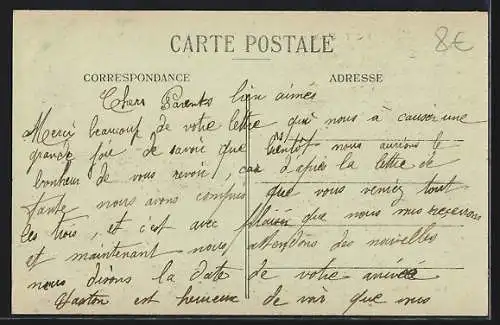 8€
CARTE POSTALE
CORRESPONDANCE
ADRESSE
Chers Parents bien aimés
Merçi beaucoup de votre lettre qui nous à causer une
grande joie de savoir que bientôt nous aurions le
bonheur de vous revoir, car d'après la lettre de
tante nous avons compris que vous veniez tout
les trois, et c'est avec plaisir que nous vous recevrons
et maintenant nous attendons des nouvelles
nous dirons la date de votre arrivée
Gaston est heureux de voir que vous